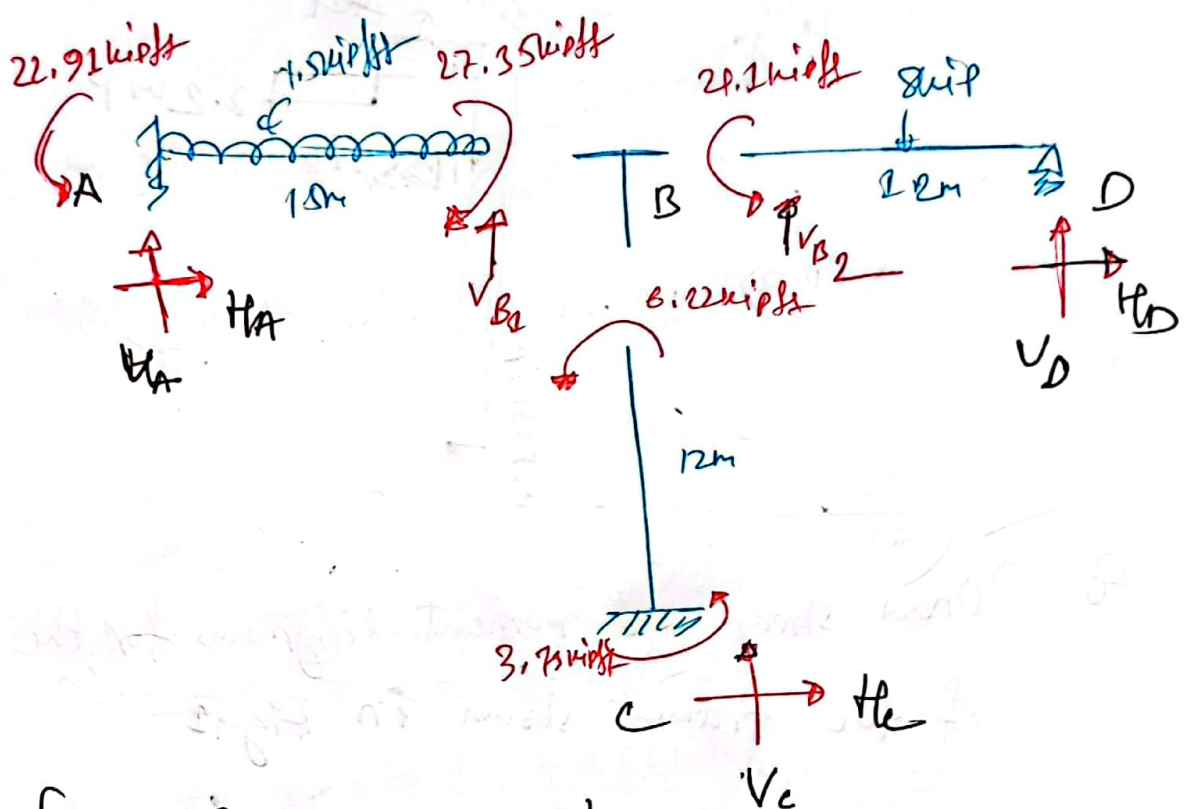 22.91kipft
1.5kip/ft
27.35kipft
21.1kipft
8kip
A
15m
B
12m
D
V_B1
V_B2
H_A
V_A
H_D
V_D
6.22kipft
12m
3.75kipft
C
H_C
V_C